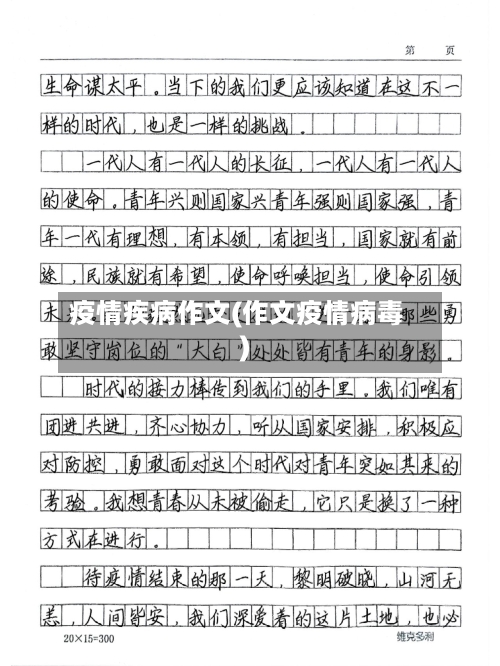 第 页
生命谋太平。当下的我们更应该知道在这不一
样的时代，也是一样的挑战。
一代人有一代人的长征，一代人有一代人
的使命。青年兴则国家兴青年强则国家强，青
年一代有理想，有本领，有担当，国家就有前
途，民族就有希望，使命呼唤担当，使命引领
未
疫情疾病作文(作文疫情病毒
那些勇
)
敢坚守岗位的“大白”处处皆有青年的身影。
时代的接力棒传到我们的手里。我们唯有
团进共进，齐心协力，听从国家安排，积极应
对防控，勇敢面对这个时代对青年突如其来的
考验。我想青春从未被偷走，它只是换了一种
方式在进行。
待疫情结束的那一天，黎明破晓，山河无
恙，人间皆安，我们深爱着的这片土地，也必
20×15=300 维克多利